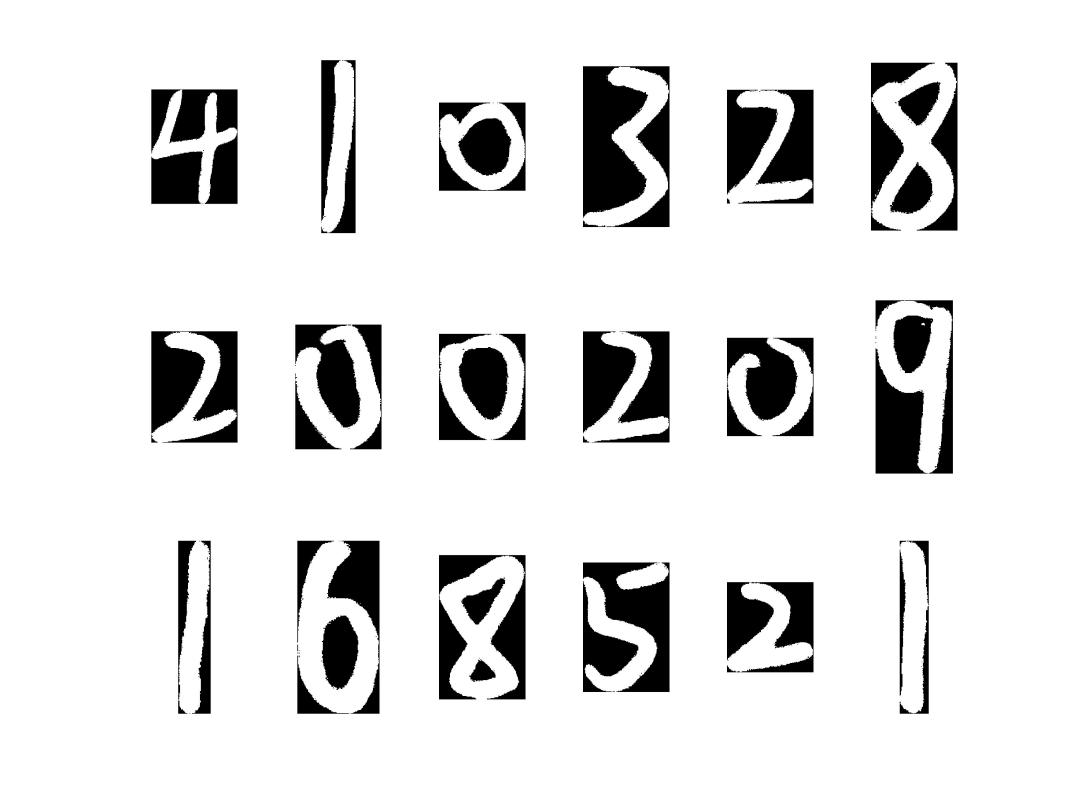 4 1 0 3 2 8
2 0 0 2 0 9
1 6 8 5 2 1